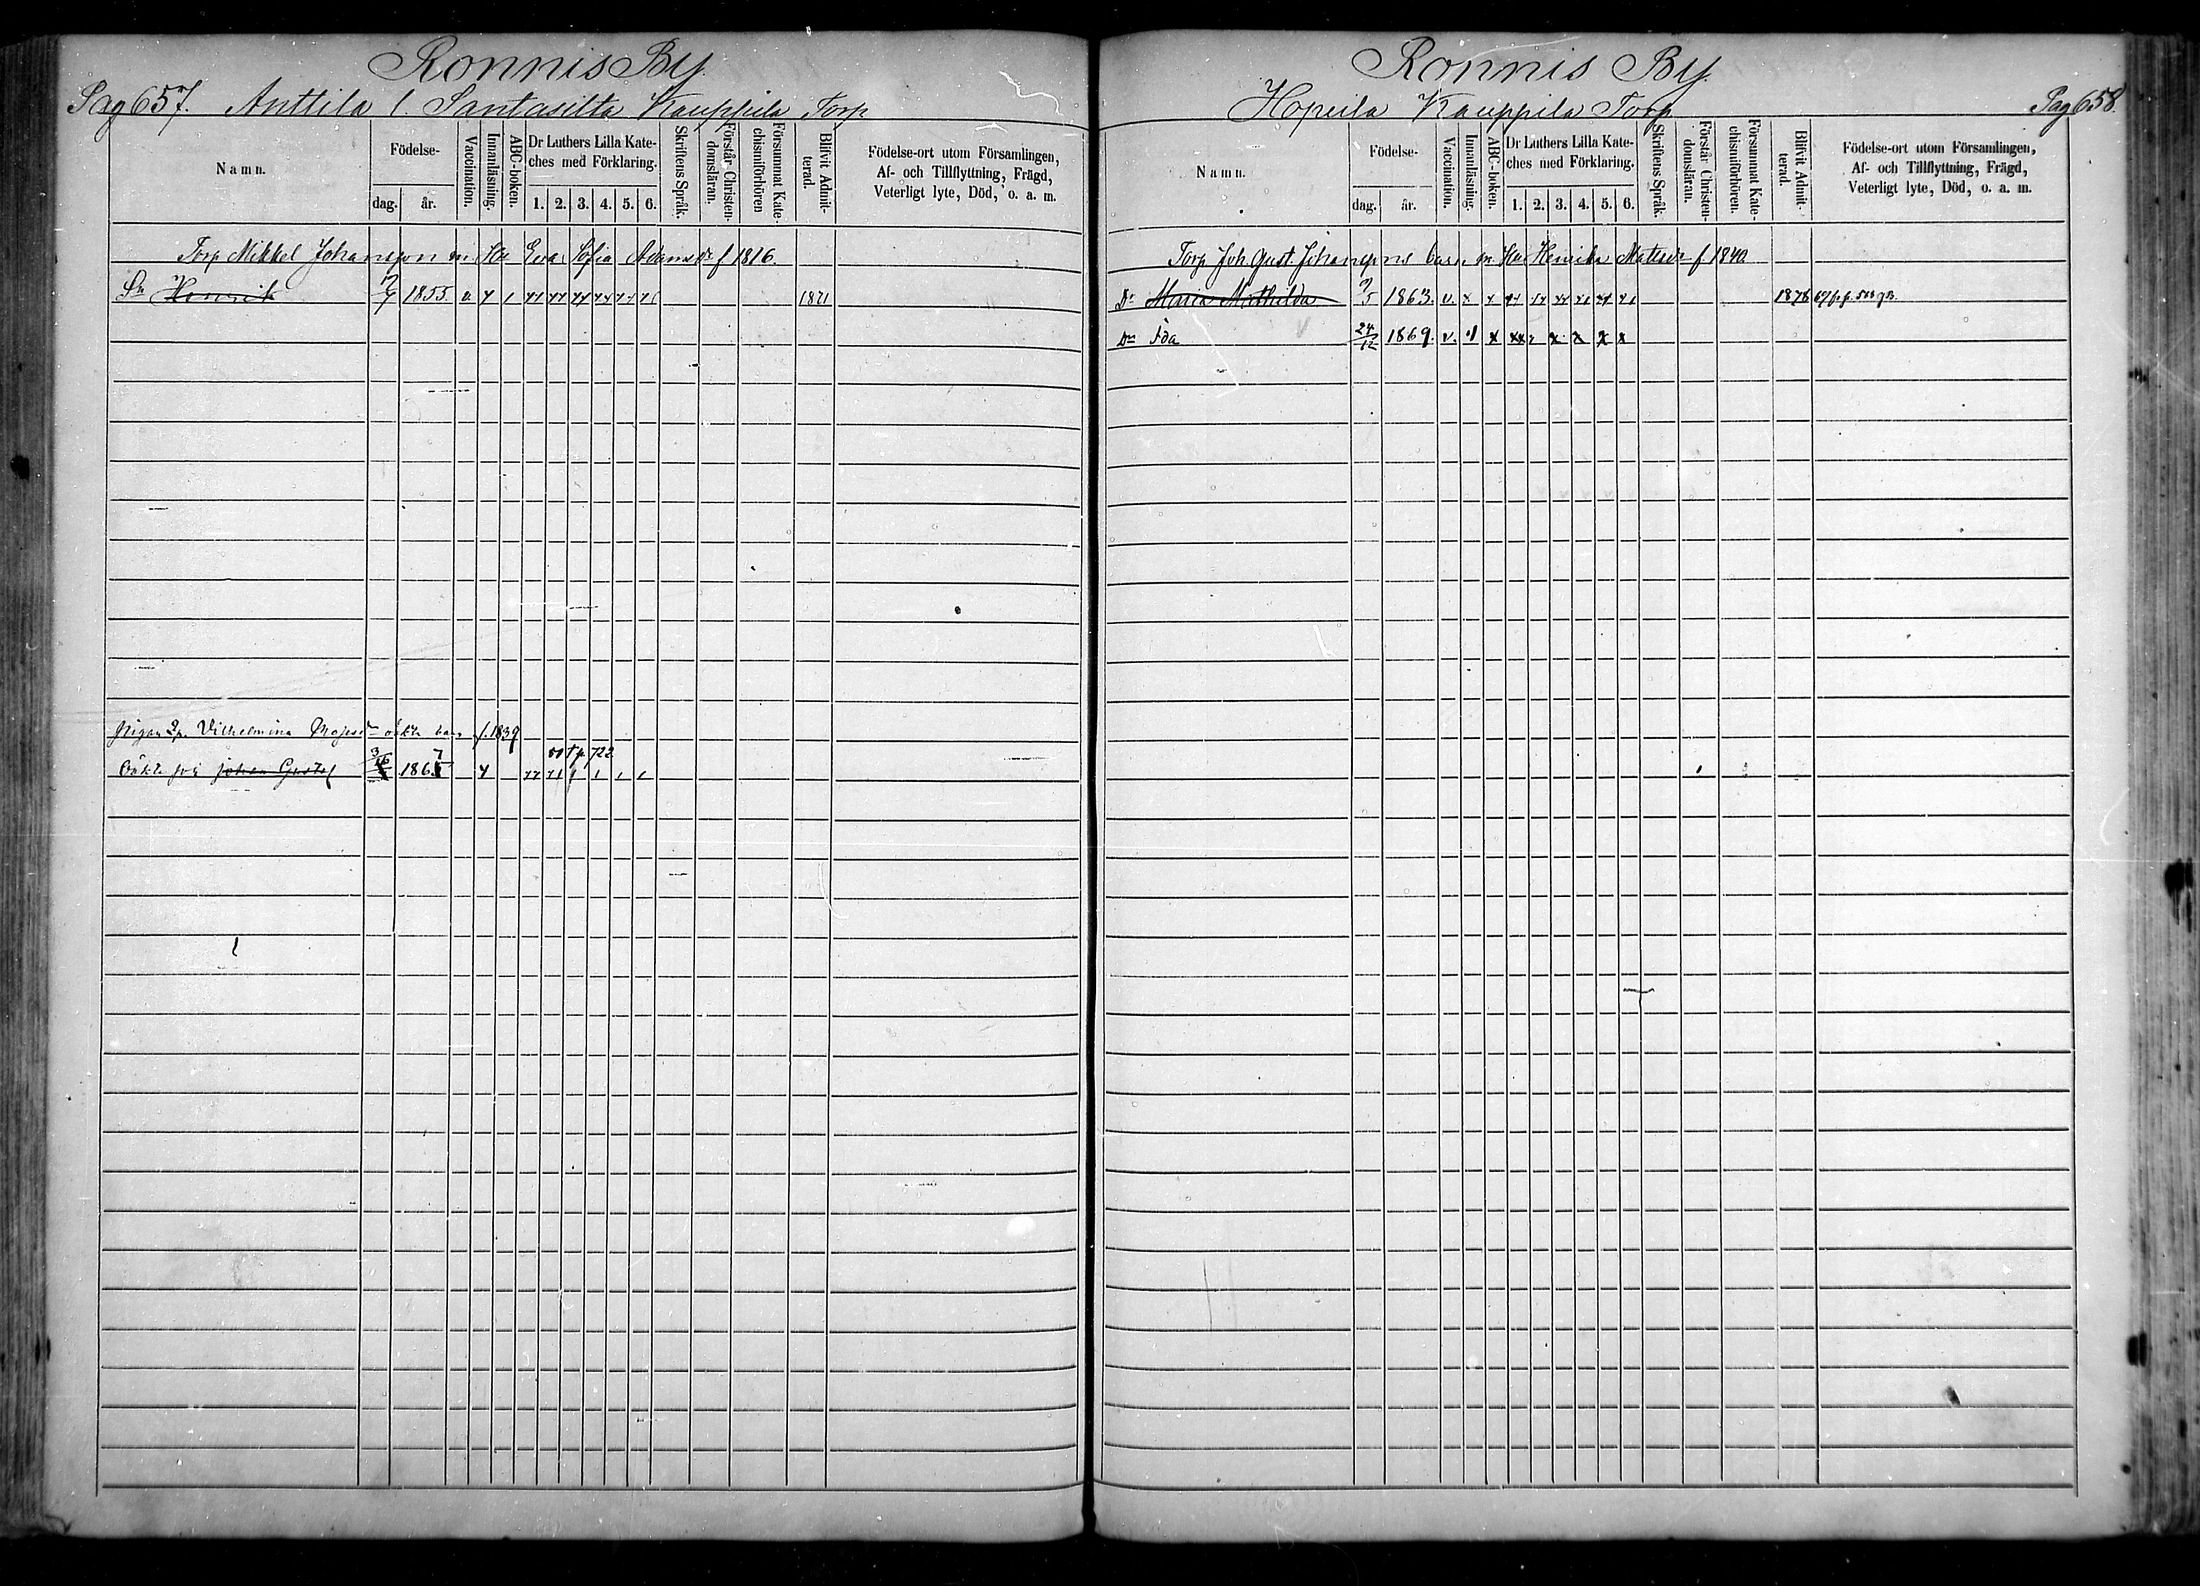 Ronnis By.
Pag 657. Anttila l. Santasilta Kauppila Torp
Namn.
Födelse-
dag.
år.
Vaccination.
Innanläsning.
ABC-boken.
Dr Luthers Lilla Kate-
ches med Förklaring.
1. 2. 3. 4. 5. 6.
Skriftens Språk.
Förstår Christen-
domsläran.
Försummat Kate-
chismiförhören
Blifvit Admit-
terad.
Födelse-ort utom Församlingen,
Af- och Tillflyttning, Frägd,
Veterligt lyte, Död, o. a. m.
Torp Mikkel Johansson m Hu Eva Sofia Adamsdr f 1816.
Sn Henrik 1855. v. 1871
Pigan Vilhelmina oäkta barn f. 1839
722
Oäkta Johan Gustaf 186
Ronnis By.
Hopeila Kauppila Torp
Pag 658.
Namn.
Födelse-
dag.
år.
Vaccination.
Innanläsning.
ABC-boken.
Dr Luthers Lilla Kate-
ches med Förklaring.
1. 2. 3. 4. 5. 6.
Skriftens Språk.
Förstår Christen-
domsläran.
Försummat Kate-
chismiförhören.
Blifvit Admit-
terad.
Födelse-ort utom Församlingen,
Af- och Tillflyttning, Frägd,
Veterligt lyte, Död, o. a. m.
Torp Joh Gust. Johanssons barn m Hu Henrika Matsdr f 1840
Dr Maria Mathilda 1863. v. 1878
Dr Ida 24/12 1869. v.